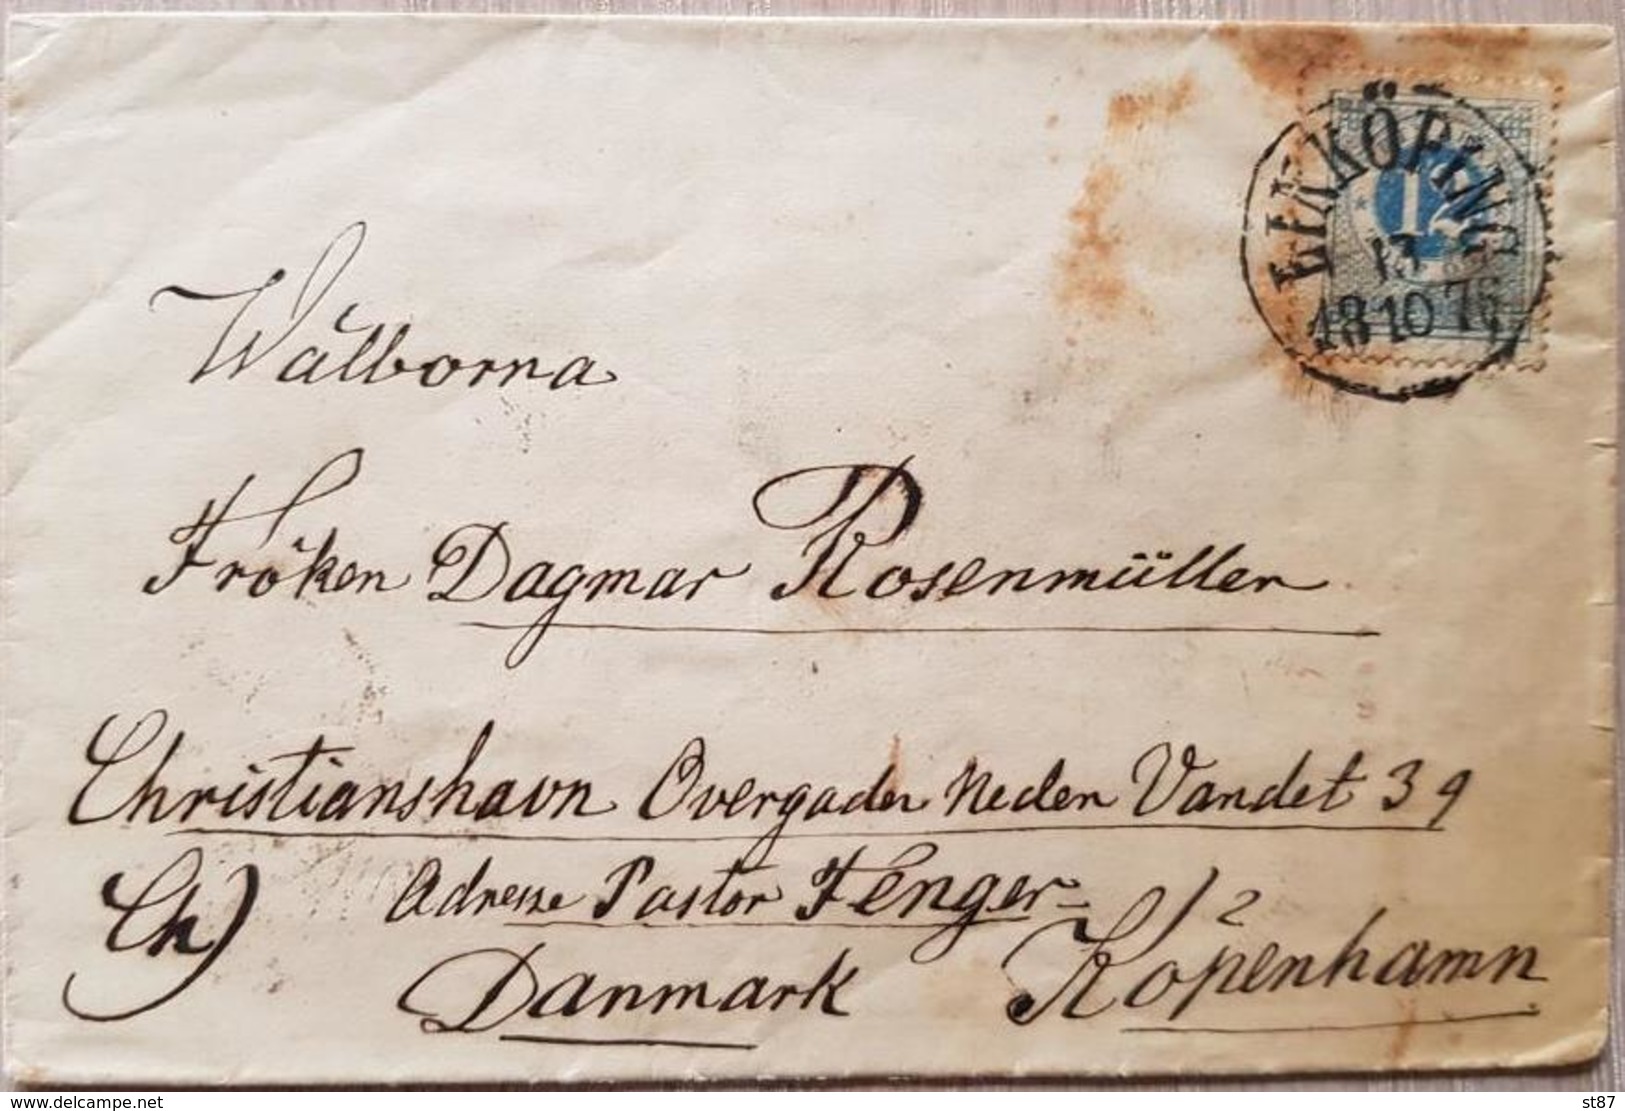 LIKÖPING
12
13
1810 76
Wälborna
Fröken Dagmar Rosenmüller
Christianshavn Overgaden Neden Vandet 39
Adresse Pastor Fenger
Ch)
1/2
Danmark Köpenhamn
www.delcampe.net
st87